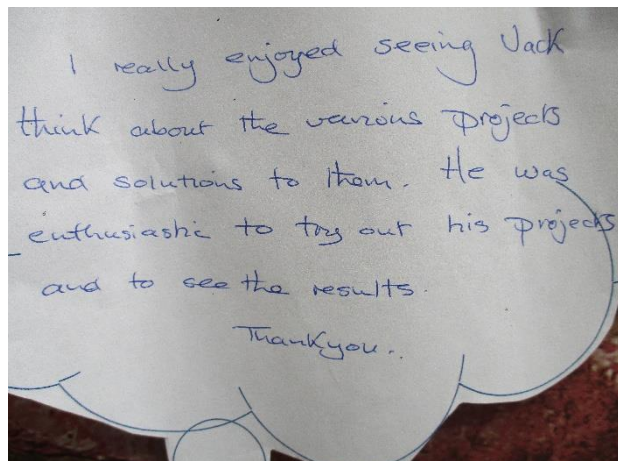 I really enjoyed seeing Jack
think about the various projects
and solutions to them. He was
enthusiastic to try out his projects
and to see the results.
Thankyou..